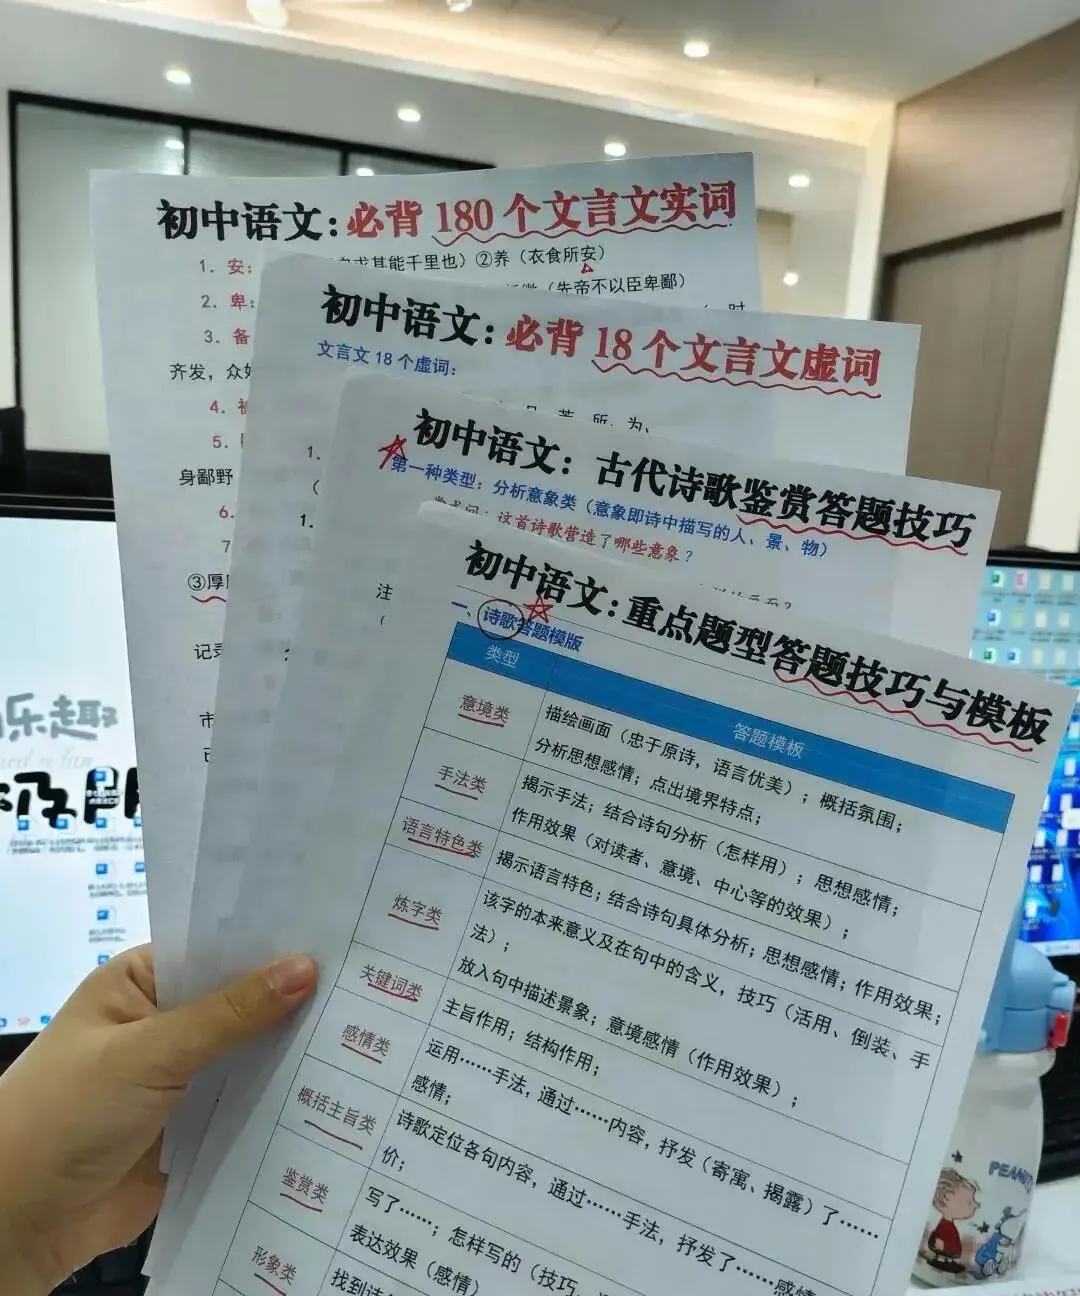 初中语文：必背180个文言文实词
1. 安：
求其能千里也）②养（衣食所安）
2. 卑：
（先帝不以臣卑鄙）
3. 备
齐发，众
4.
5.
身鄙野
6.
7
③厚
记录
市
初中语文：必背18个文言文虚词
文言文18个虚词：
若 所 为、
1.
（
1.
注
（
初中语文：古代诗歌鉴赏答题技巧
第一种类型：分析意象类（意象即诗中描写的人、景、物）
这首诗歌营造了哪些意象？
初中语文：重点题型答题技巧与模板
一、诗歌答题模版
类型 答题模板
意境类 描绘画面（忠于原诗，语言优美）；概括氛围；
分析思想感情；点出境界特点；
手法类 揭示手法；结合诗句分析（怎样用）；思想感情；
作用效果（对读者、意境、中心等的效果）；
语言特色类 揭示语言特色；结合诗句具体分析；思想感情；作用效果；
炼字类 该字的本来意义及在句中的含义，技巧（活用、倒装、手
法）；
放入句中描述景象；意境感情（作用效果）；
关键词类 主旨作用；结构作用；
感情类 运用……手法，通过……内容，抒发（寄寓、揭露）了……
感情；
概括主旨类 诗歌定位各句内容，通过……手法，抒发了……感情
价；
鉴赏类 写了……；怎样写的（技巧、
表达效果（感情）
形象类 找到诗
乐趣
PEANUTS